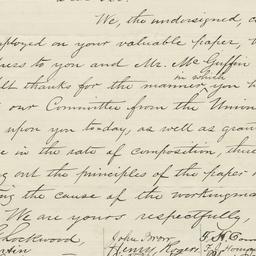 We, the undersigned, c
ployed on your valuable paper,
ress to you and Mr. McGuffin
thanks for the manner in which you h
our Committee from the Union
upon you today, as well as gran
in the rate of composition, there
out the principles of the paper
ing the cause of the workingma
We are yours respectfully,
Lockwood, John Brow
Henry